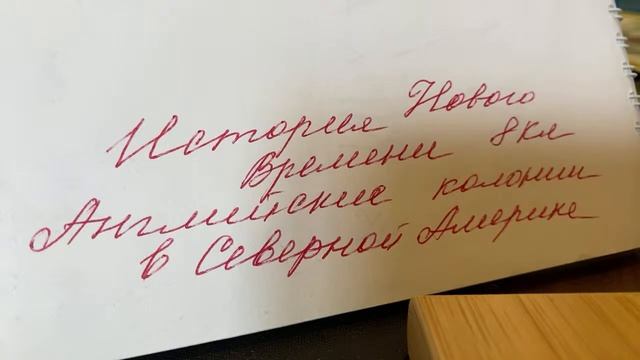 История Нового
Времени 8кл
Английские колонии
в Северной Америке